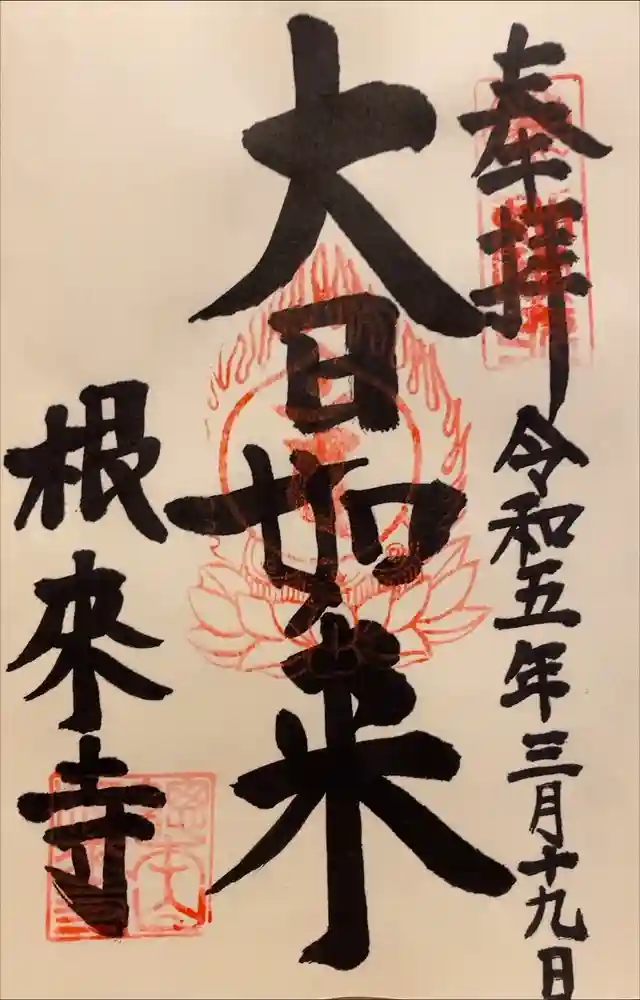 奉拝
令和五年三月十九日
大日如来
根來寺